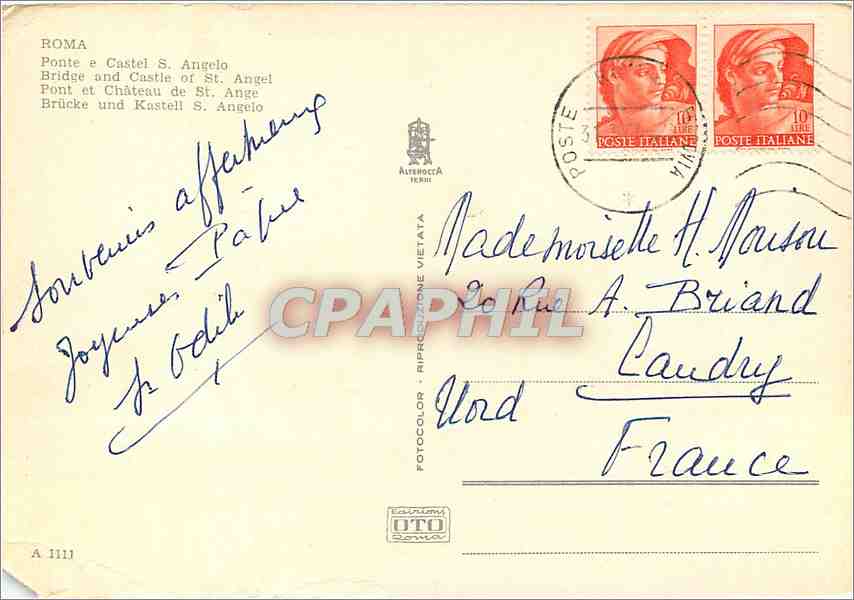 ROMA
Ponte e Castel S. Angelo
Bridge and Castle of St. Angel
Pont et Château de St. Ange
Brücke und Kastell S. Angelo
Souvenirs affectueux
Joyeuses Pâques
Sr Odile
ALTEROCCA
TERNI
FOTOCOLOR - RIPRODUZIONE VIETATA
10
LIRE
POSTE ITALIANE
10
LIRE
POSTE ITALIANE
POSTE
Mademoiselle H.
20 Rue A. Briand
Landry
Nord
France
CPAPHIL
Edizioni
OTO
Roma
A 1111